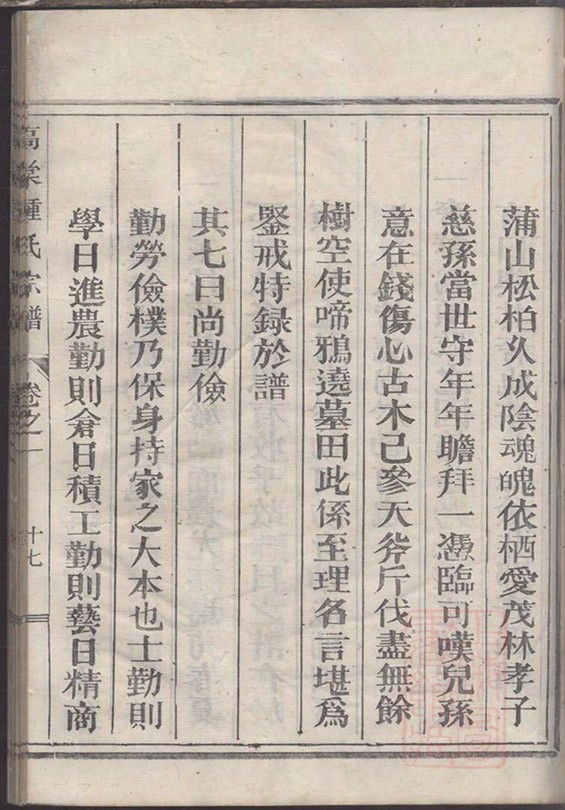 蒲山松柏久成陰魂魄依栖愛茂林孝子
慈孫當世守年年瞻拜一憑臨可嘆兒孫
意在錢傷心古木已參天斧斤伐盡無餘
樹空使啼鴉遶墓田此係至理名言堪爲
鑒戒特録於譜
其七曰尚勤儉
勤勞儉樸乃保身持家之大本也士勤則
學日進農勤則倉日積工勤則藝日精商
高棠鍾氏宗譜
卷之一
十七